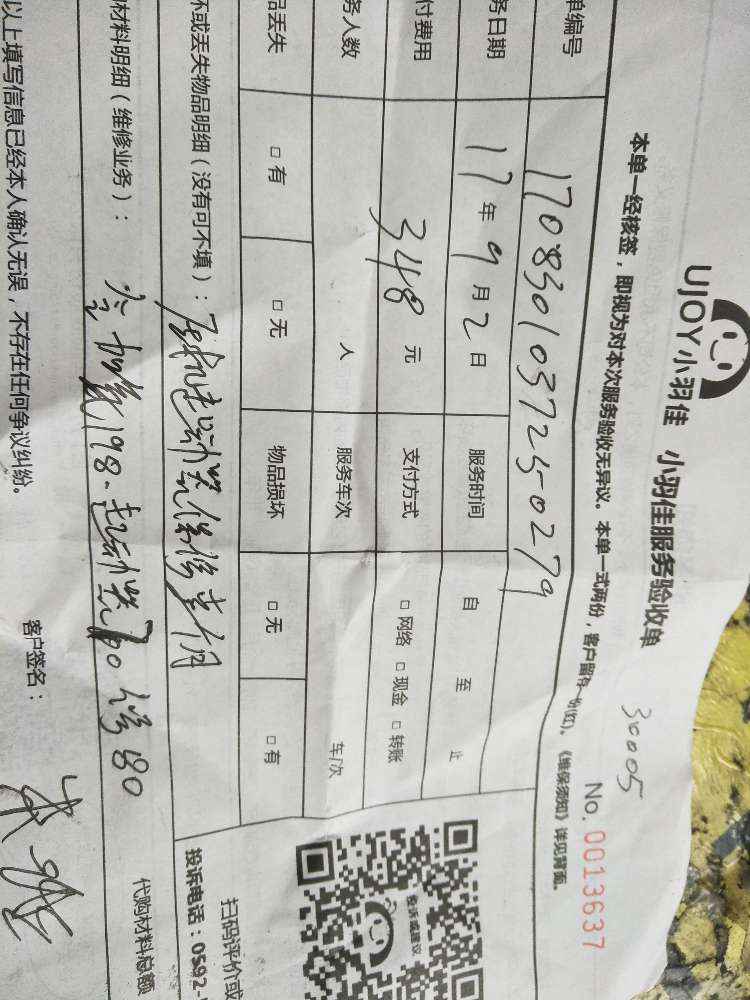 UJOY小羽佳 小羽佳服务验收单
30005
本单一经核签，即视为对本次服务验收无异议。本单一式两份，客户留存一份(红)。《维保须知》详见背面。
No. 0013637
单编号 1708301037250279
务日期 17年9月2日 服务时间 自 至 止
付费用 348元 支付方式 □ 网络 □ 现金 □ 转账
务人数 人 服务车次 车/次
品丢失 □ 有 □ 无 物品损坏 □ 无 □ 有
坏或丢失物品明细（没有可不填）：
起动器保修
材料明细（维修业务）：
198-起动器70 80
代购材料总额
以上填写信息已经本人确认无误，不存在任何争议纠纷。
客户签名：
投诉建议
扫码评价或
投诉电话：0592-